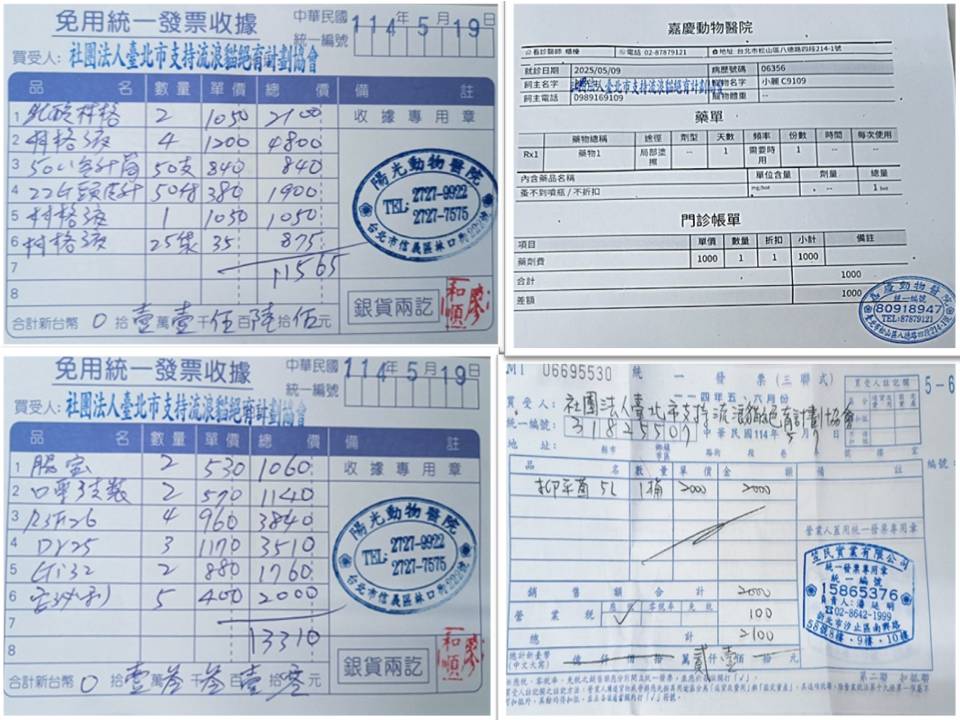 免用統一發票收據
中華民國 114年5月19日
統一編號
買受人：社團法人臺北市支持流浪貓絕育計劃協會
品 名 數量 單價 總價 備 註
1 乳酸林格 2 1050 2100 收據專用章
2 林格液 4 1200 4800
3 50支 840 840
4 50 380 1900
5 林格液 1 1050 1050
6 林格液 25 35 875
7 11565
8
陽光動物醫院
TEL: 2727-9922
2727-7575
銀貨兩訖
合計新台幣 0 拾 壹 萬 壹 千 伍 百 陸 拾 伍 元
嘉慶動物醫院
看診醫師 櫃檯 電話 02-87879121 地址 台北市松山區八德路四段214-1號
就診日期 2025/05/09 病歷號碼 06356
飼主名字 社團法人臺北市支持流浪貓絕育計劃協會 寵物名字 小麗 C9109
飼主電話 0989169109 寵物體重 --
藥單
藥物總稱 途徑 劑型 天數 頻率 份數 時間 每次使用
Rx1 藥物1 局部塗擦 -- 1 需要時用 1 -- --
內含藥品名稱 單位含量 劑量 總量
蚤不到噴瓶 / 不折扣 mg/bot -- 1 bot
門診帳單
項目 單價 數量 折扣 小計 備註
藥劑費 1000 1 1 1000
合計 1000
差額 1000
嘉慶動物醫院
統一編號
80918947
TEL:87879121
台北市松山區八德路四段214-1號
免用統一發票收據
中華民國 114年5月19日
統一編號
買受人：社團法人臺北市支持流浪貓絕育計劃協會
品 名 數量 單價 總價 備 註
1 腸宝 2 530 1060 收據專用章
2 2 570 1140
3 4 960 3840
4 3 1170 3510
5 2 880 1760
6 5 400 2000
7
8 13310
陽光動物醫院
TEL: 2727-9922
2727-7575
銀貨兩訖
合計新台幣 0 拾 壹 萬 叁 千 叁 百 壹 拾 零 元
06695530 統一發票（三聯式）
一一四年五、六月份 5-6
買受人：社團法人臺北市支持流浪貓絕育計劃協會
統一編號：31825507 中華民國114年
地址：
編號：
品名 數量 單價 金額 備註
抑平菌 5L 1桶 2000 2000
營業人蓋用統一發票專用章
銷售額合計 2000
營業稅 應稅 ✓ 零稅率 免稅 100
總計 2100
總計新臺幣（中文大寫） 億 仟 佰 拾 萬 貳 仟 壹 佰 拾 元
笠民實業有限公司
統一發票專用章
統一編號
15865376
負責人：潘延明
02-8642-1999
新北市汐止區南興路
58號8樓、9樓、10樓
第二聯 扣抵聯